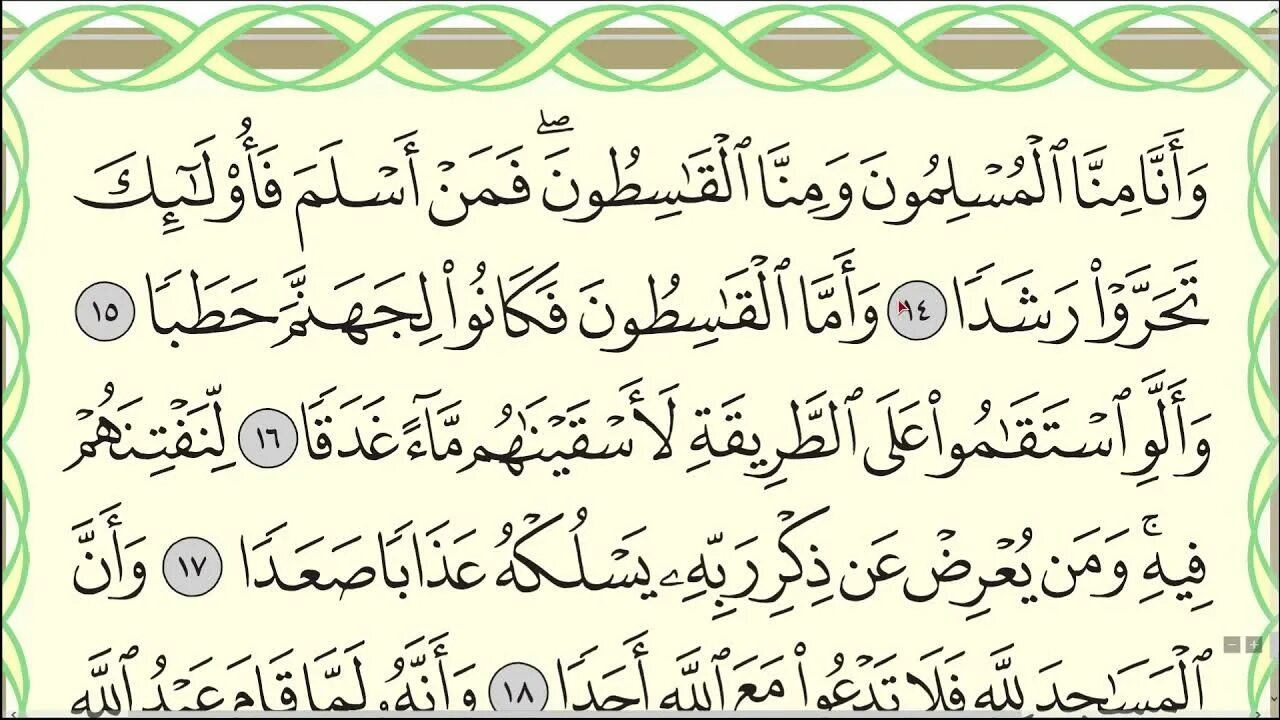 وَأَنَّا مِنَّا ٱلْمُسْلِمُونَ وَمِنَّا ٱلْقَـٰسِطُونَ ۖ فَمَنْ أَسْلَمَ فَأُو۟لَـٰٓئِكَ
تَحَرَّوْا۟ رَشَدًا ١٤ وَأَمَّا ٱلْقَـٰسِطُونَ فَكَانُوا۟ لِجَهَنَّمَ حَطَبًا ١٥
وَأَلَّوِ ٱسْتَقَـٰمُوا۟ عَلَى ٱلطَّرِيقَةِ لَأَسْقَيْنَـٰهُم مَّآءً غَدَقًا ١٦ لِّنَفْتِنَهُمْ
فِيهِ ۚ وَمَن يُعْرِضْ عَن ذِكْرِ رَبِّهِۦ يَسْلُكْهُ عَذَابًا صَعَدًا ١٧ وَأَنَّ
ٱلْمَسَـٰجِدَ لِلَّهِ فَلَا تَدْعُوا۟ مَعَ ٱللَّهِ أَحَدًا ١٨ وَأَنَّهُۥ لَمَّا قَامَ عَبْدُ ٱللَّهِ